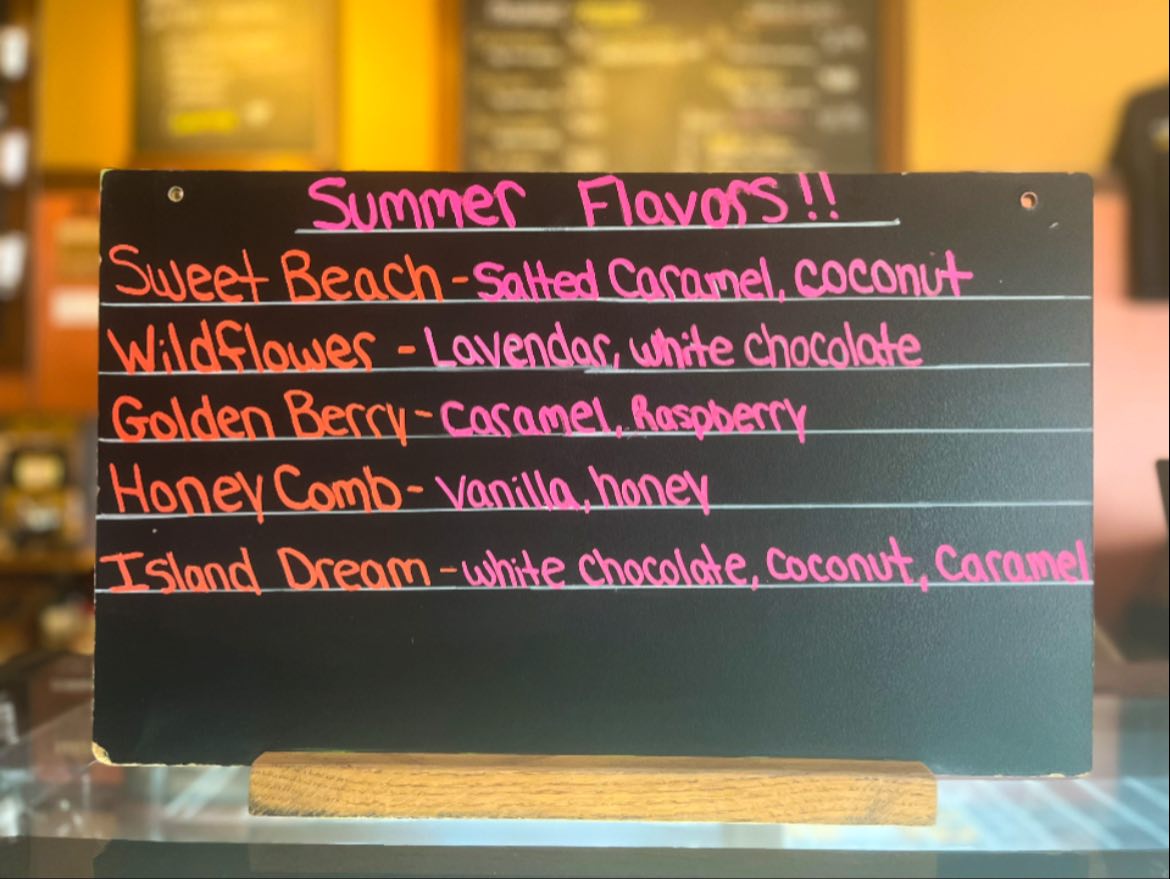 Summer Flavors!!
Sweet Beach - Salted Caramel, coconut
Wildflower - Lavendar, white chocolate
Golden Berry - Caramel, Raspberry
Honey Comb - Vanilla, honey
Island Dream - white chocolate, coconut, Caramel